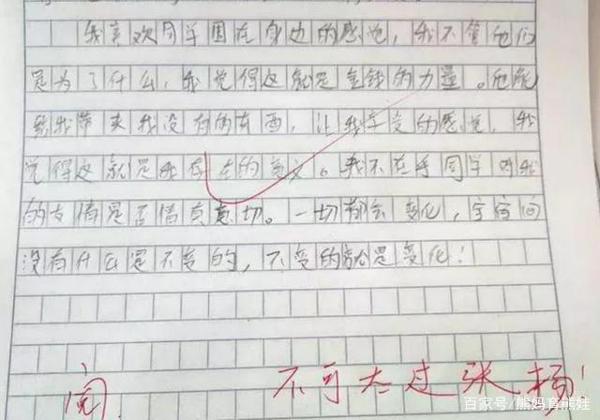 我喜欢同学围在身边的感觉，我不管他们
是为了什么，我觉得这就是金钱的力量。他能
给我带来我没有的东西，让我享受的感觉，我
觉得这就是我存在的意义。我不在乎同学对我
的友情是否情真意切。一切都会变化，宇宙间
没有什么是不变的，不变的就是变化！
阅.
不可太过张扬！
百家号/熊妈育熊娃